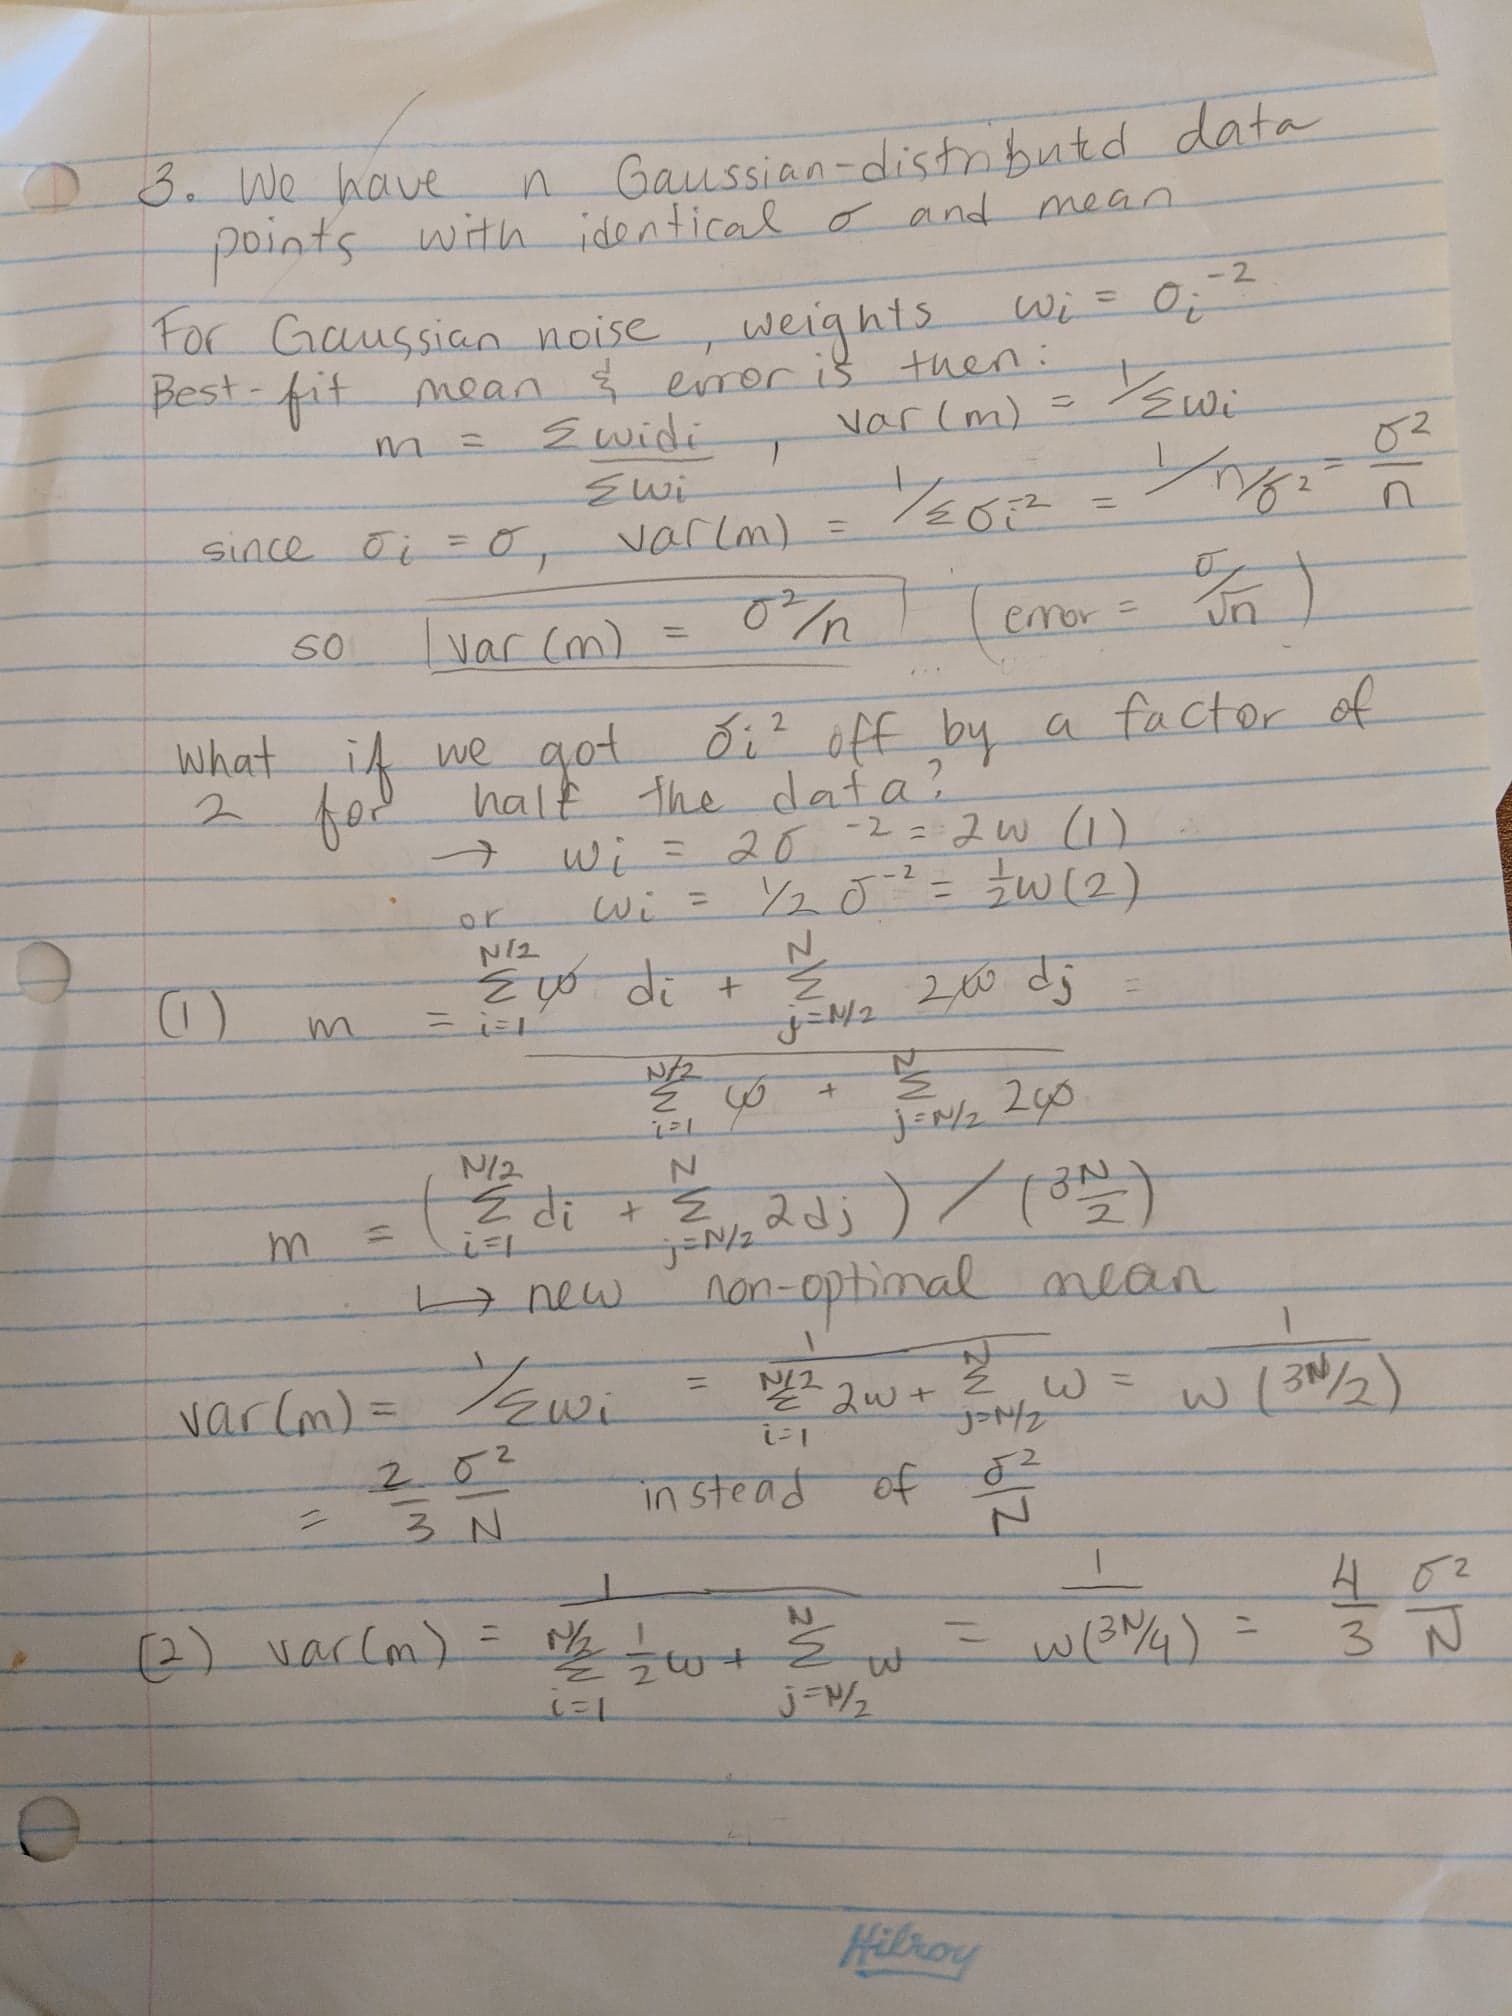 3. We have n Gaussian-distributd data
points with identical σ and mean
For Gaussian noise, weights wi = σi^-2
Best-fit mean & error is then:
m = Σwidi / Σwi , var(m) = 1/Σwi
since σi = σ, var(m) = 1/Σσi^-2 = 1/n/σ^2 = σ^2/n
so var(m) = σ^2/n (error = σ/√n)
What if we got σi^2 off by a factor of
2 for half the data?
→ wi = 2σ^-2 = 2w (1)
or wi = 1/2 σ^-2 = 1/2 w (2)
(1) m = (Σ_{i=1}^{N/2} w di + Σ_{j=N/2}^{N} 2w dj) / (Σ_{i=1}^{N/2} w + Σ_{j=N/2}^{N} 2w) =
m = (Σ_{i=1}^{N/2} di + Σ_{j=N/2}^{N} 2dj) / (3N/2)
↳ new non-optimal mean
var(m) = 1/Σwi = 1 / (Σ_{i=1}^{N/2} 2w + Σ_{j=N/2}^{N} w) = 1 / w(3N/2)
= 2/3 σ^2/N instead of σ^2/N
(2) var(m) = 1 / (Σ_{i=1}^{N/2} 1/2 w + Σ_{j=N/2}^{N} w) = 1 / w(3N/4) = 4/3 σ^2/N
Hilroy